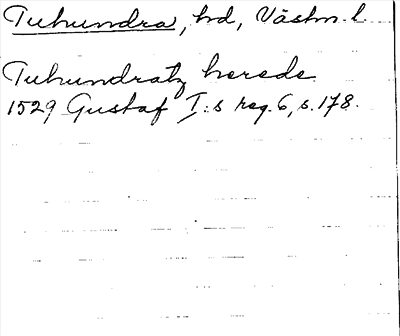 Tuhundra, hd, Västm. l.
Tuhundratz herede
1529 Gustaf I:s reg. 6, s. 178.